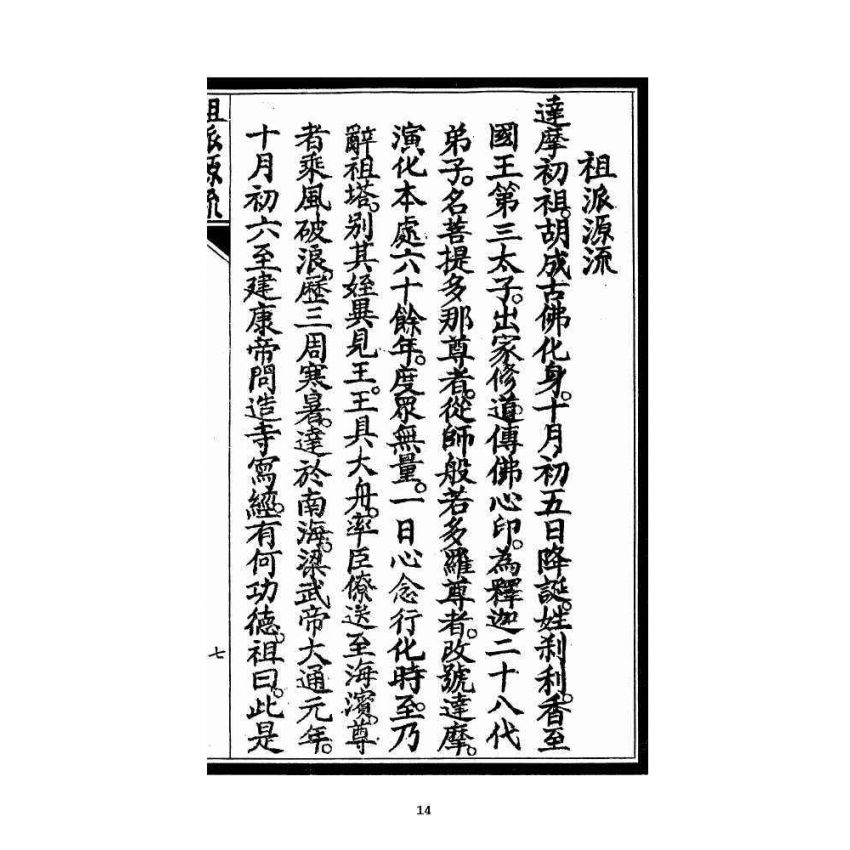 祖派源流
達摩初祖。胡成古佛化身。十月初五日降誕。姓刹利。香至
國王第三太子。出家修道。傳佛心印。為釋迦二十八代
弟子。名菩提多那尊者。從師般若多羅尊者。改號達摩。
演化本處六十餘年。度眾無量。一日心念行化時至。乃
辭祖塔。別其姪異見王。王具大舟。率臣僚送至海濱。尊
者乘風破浪。歷三周寒暑。達於南海。梁武帝大通元年。
十月初六至建康帝問造寺寫經。有何功德。祖曰。此是
祖派源流
七
14